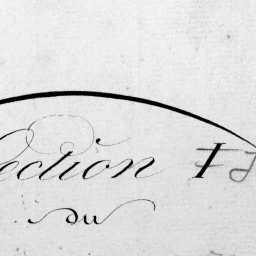 Section I
du